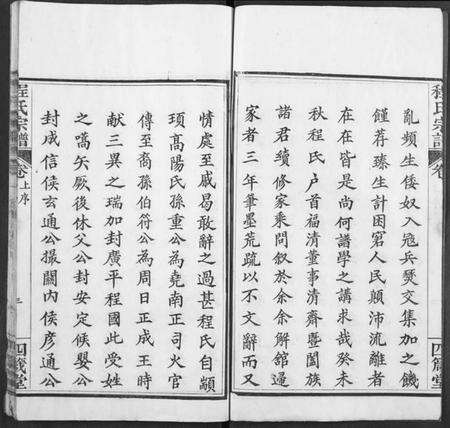 亂頻生倭奴入寇兵燹交集加之饑
饉荐臻生計困窘人民顛沛流離者
在在皆是尚何譜學之講求哉癸未
秋程氏户首福清董事清齋暨闔族
諸君續修家乘問叙於余余解舘遄
家者三年筆墨荒疏以不文辭而又
程氏宗譜
卷
四箴堂
程氏宗譜
卷上序
四箴堂
情處至戚曷敢辭之過甚程氏自顓
頊高陽氏孫重公為堯南正司火官
傳至裔孫伯符公為周日正成王時
献三異之瑞加封廣平程國此受姓
之嚆矢厥後休父公封安定候嬰公
封成信侯玄通公撮關内侯彥通公